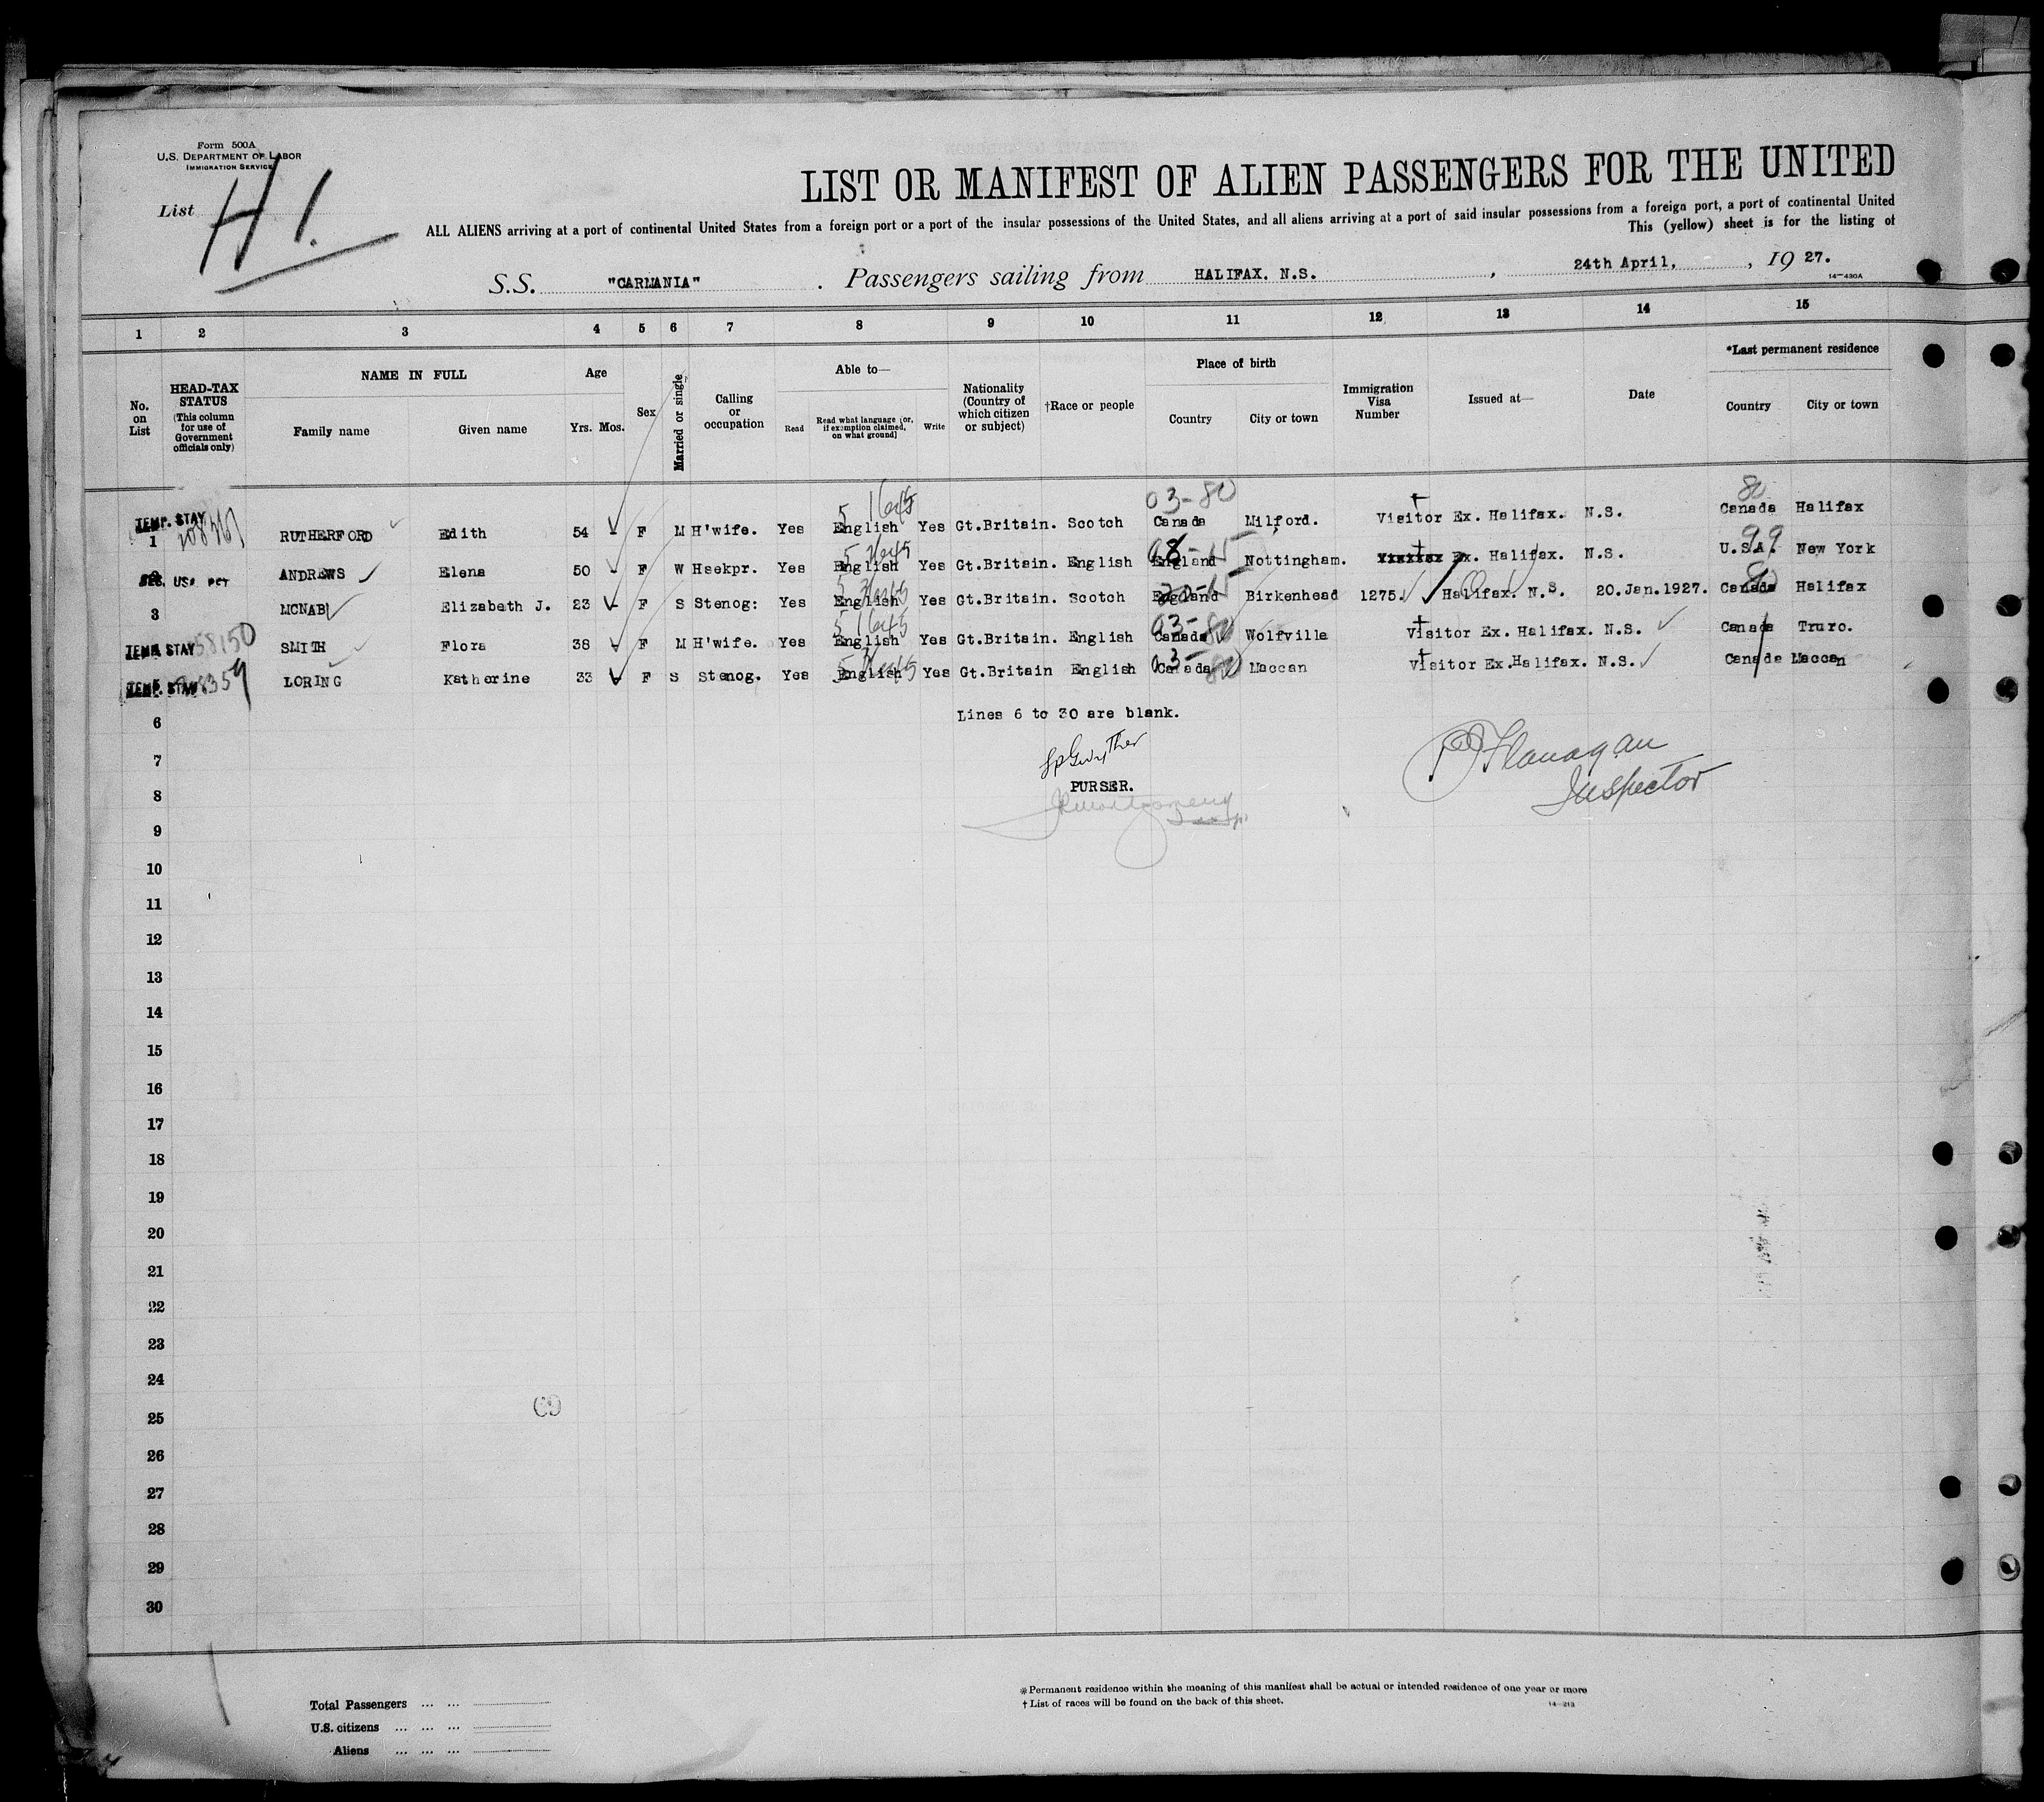 Form 500A
U.S. DEPARTMENT OF LABOR
IMMIGRATION SERVICE
List H 1.
LIST OR MANIFEST OF ALIEN PASSENGERS FOR THE UNITED
ALL ALIENS arriving at a port of continental United States from a foreign port or a port of the insular possessions of the United States, and all aliens arriving at a port of said insular possessions from a foreign port, a port of continental United
This (yellow) sheet is for the listing of
S.S. "CARMANIA" . Passengers sailing from HALIFAX. N.S. , 24th April, , 19 27.
14-430A
1 2 3 4 5 6 7 8 9 10 11 12 13 14 15
No. on List
HEAD-TAX STATUS (This column for use of Government officials only)
NAME IN FULL
Family name Given name
Age
Yrs. Mos.
Sex
Married or single
Calling or occupation
Able to—
Read Read what language [or, if exemption claimed, on what ground] Write
Nationality (Country of which citizen or subject)
†Race or people
Place of birth
Country City or town
Immigration Visa Number
Issued at—
Date
*Last permanent residence
Country City or town
03-80 80
TEMP. STAY 1 RUTHERFORD Edith 54 - F M H'wife. Yes English Yes Gt.Britain. Scotch Canada Milford. Visitor Ex. Halifax. N.S. Canada Halifax
99
ANDREWS Elena 50 - F W Hsekpr. Yes English Yes Gt.Britain. English England Nottingham. Visitor Ex. Halifax. N.S. U.S.A. New York
3 MCNAB Elizabeth J. 23 - F S Stenog: Yes English Yes Gt.Britain. Scotch England Birkenhead 1275. Halifax. N.S. 20.Jan.1927. Canada Halifax
TEMP. STAY 58150 SMITH Flora 38 F M H'wife. Yes English Yes Gt.Britain. English Canada Wolfville Visitor Ex. Halifax. N.S. Canada Truro.
TEMP. STAY LORING Katherine 33 F S Stenog. Yes English Yes Gt.Britain English Canada Maccan Visitor Ex.Halifax. N.S. Canada Maccan
6 Lines 6 to 30 are blank.
7 Flanagan
8 PURSER. Inspector
9
10
11
12
13
14
15
16
17
18
19
20
21
22
23
24
25
26
27
28
29
30
Total Passengers ... ...
U.S. citizens ... ... ...
Aliens ... ... ...
*Permanent residence within the meaning of this manifest shall be actual or intended residence of one year or more
†List of races will be found on the back of this sheet.
14-213